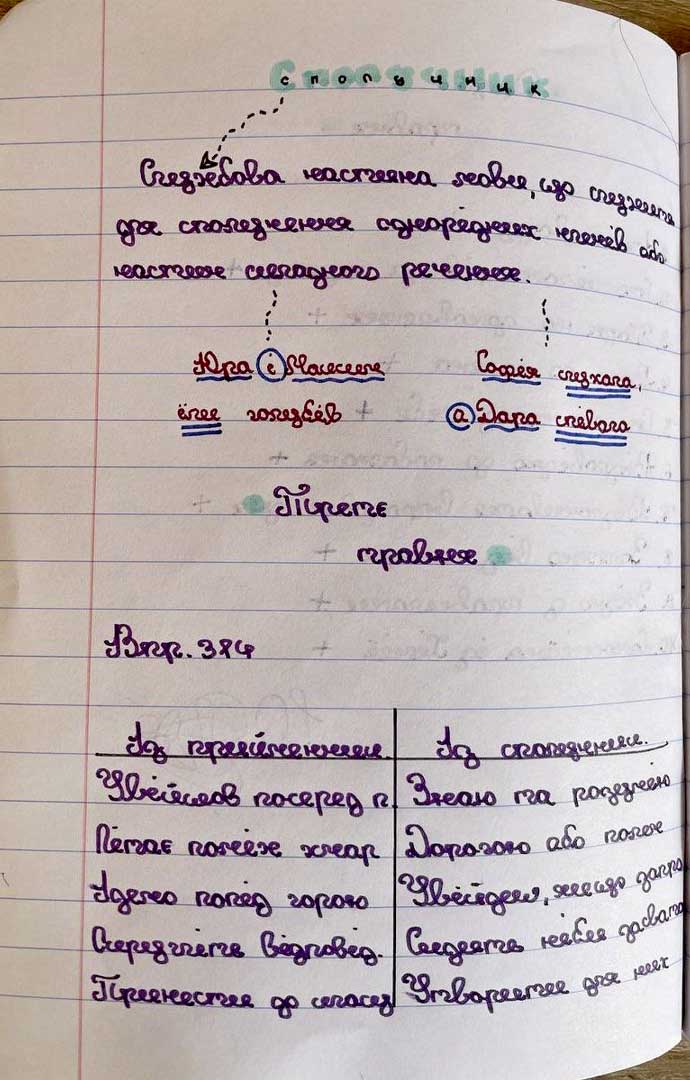 Сполучник
Службова частина мови, що служить
для сполучення однорідних членів або
частин складного речення.
Юра і Максим
їли голубців
Софія слухала,
а Дара співала
Пишемо
правильно
Впр. 384
Із прийменником. Із сполучником.
Увійшов посеред п. Знаю та розумію
Літає поміж хмар Дорогою або полем
Ідемо попід горою Увійдем, якщо запро
Середчить відповід. Сидить ніби засвата
Принести до класу Утворити для них